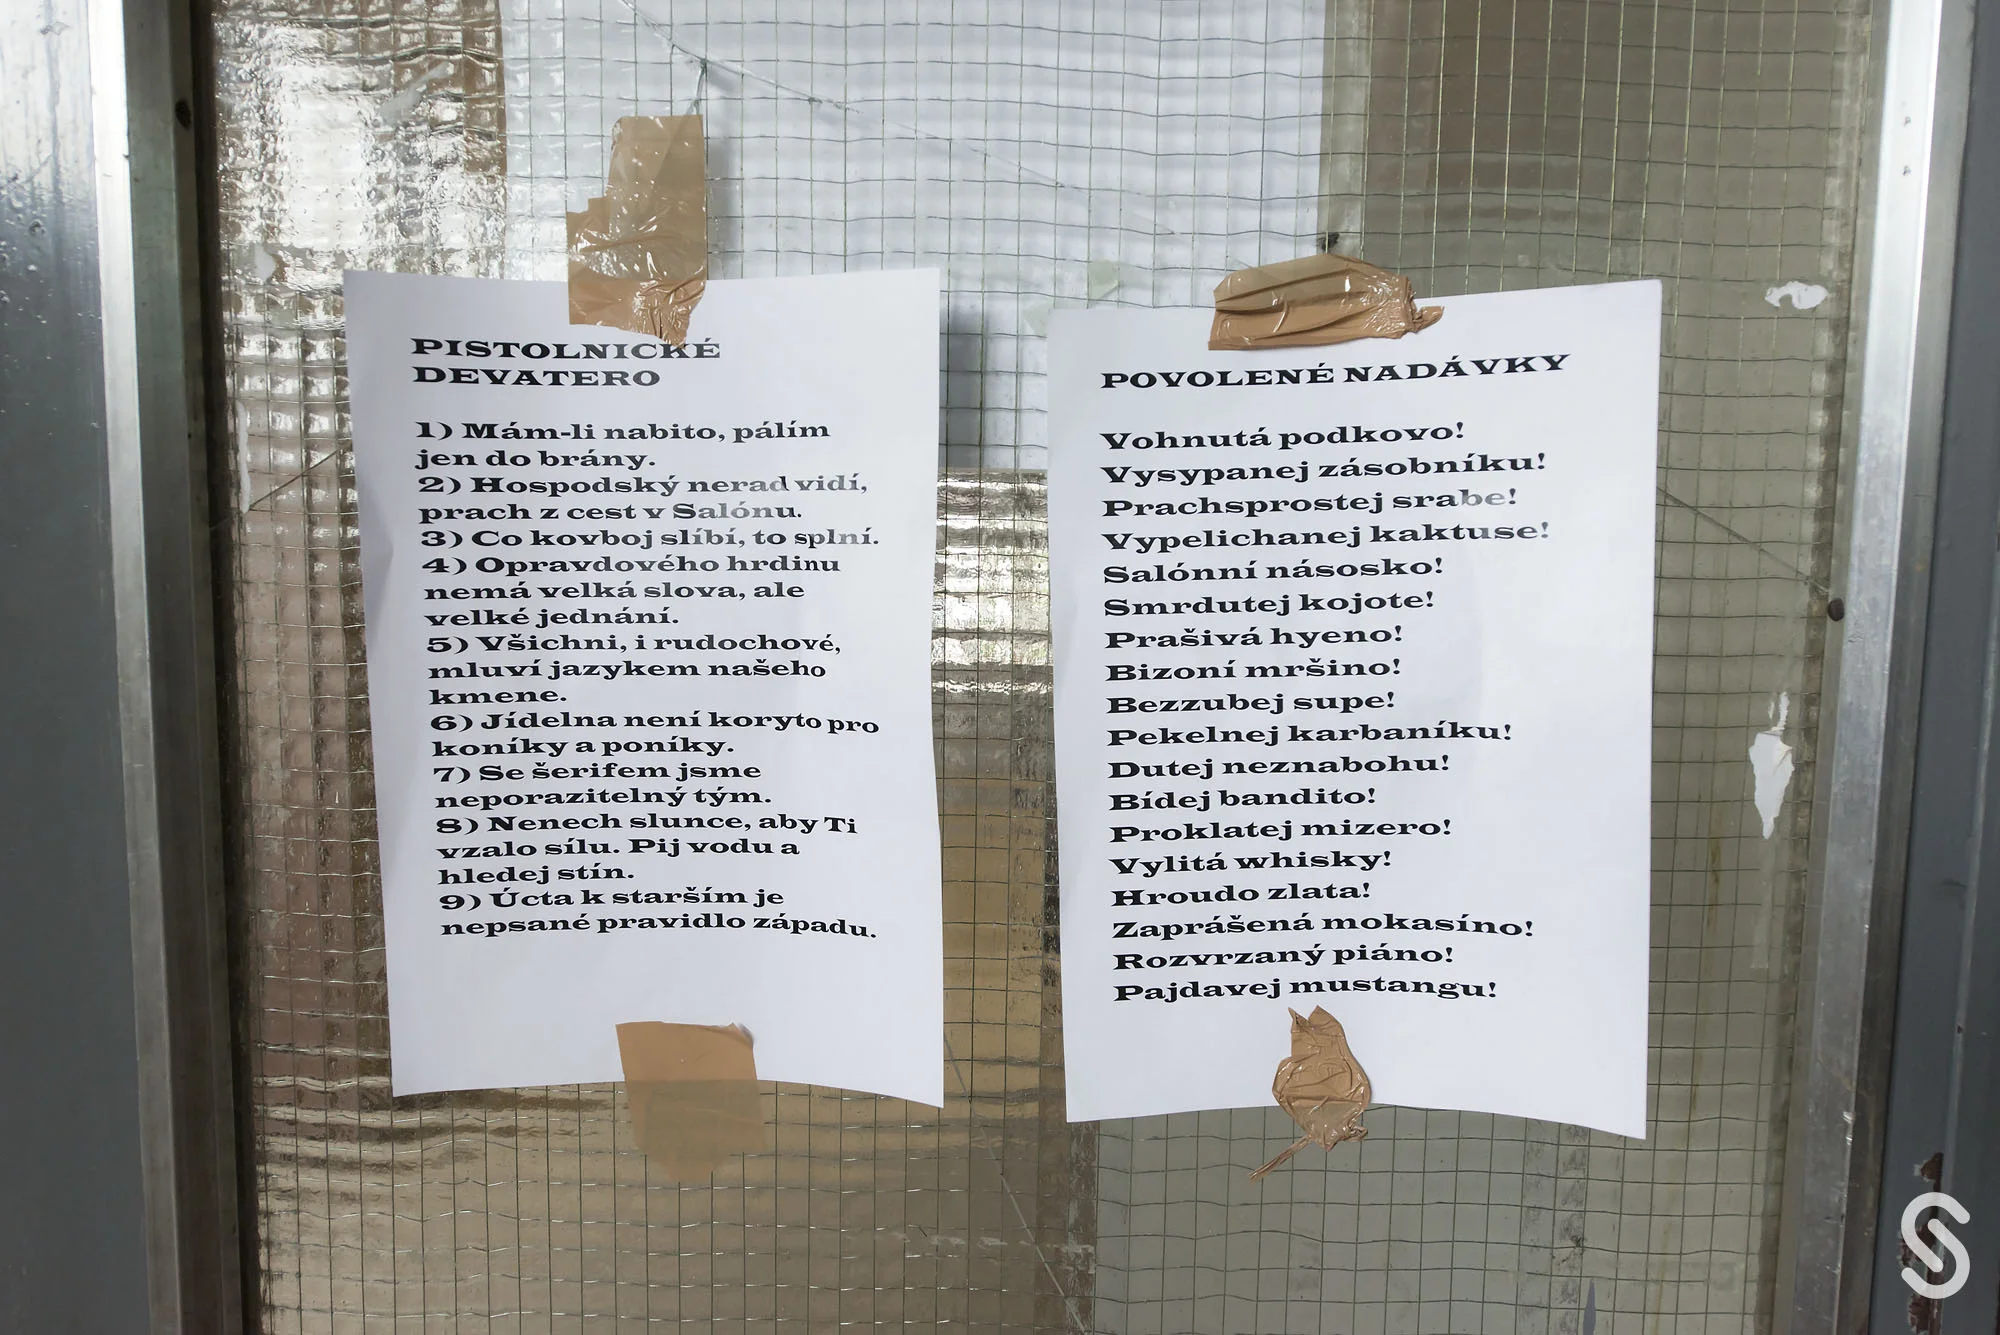 PISTOLNICKÉ
DEVATERO
1) Mám-li nabito, pálím
jen do brány.
2) Hospodský nerad vidí,
prach z cest v Salónu.
3) Co kovboj slíbí, to splní.
4) Opravdového hrdinu
nemá velká slova, ale
velké jednání.
5) Všichni, i rudochové,
mluví jazykem našeho
kmene.
6) Jídelna není koryto pro
koníky a poníky.
7) Se šerifem jsme
neporazitelný tým.
8) Nenech slunce, aby Ti
vzalo sílu. Pij vodu a
hledej stín.
9) Úcta k starším je
nepsané pravidlo západu.
POVOLENÉ NADÁVKY
Vohnutá podkovo!
Vysypanej zásobníku!
Prachsprostej srabe!
Vypelichanej kaktuse!
Salónní násosko!
Smrdutej kojote!
Prašivá hyeno!
Bizoní mršino!
Bezzubej supe!
Pekelnej karbaníku!
Dutej neznabohu!
Bídej bandito!
Proklatej mizero!
Vylitá whisky!
Hroudo zlata!
Zaprášená mokasíno!
Rozvrzaný piáno!
Pajdavej mustangu!